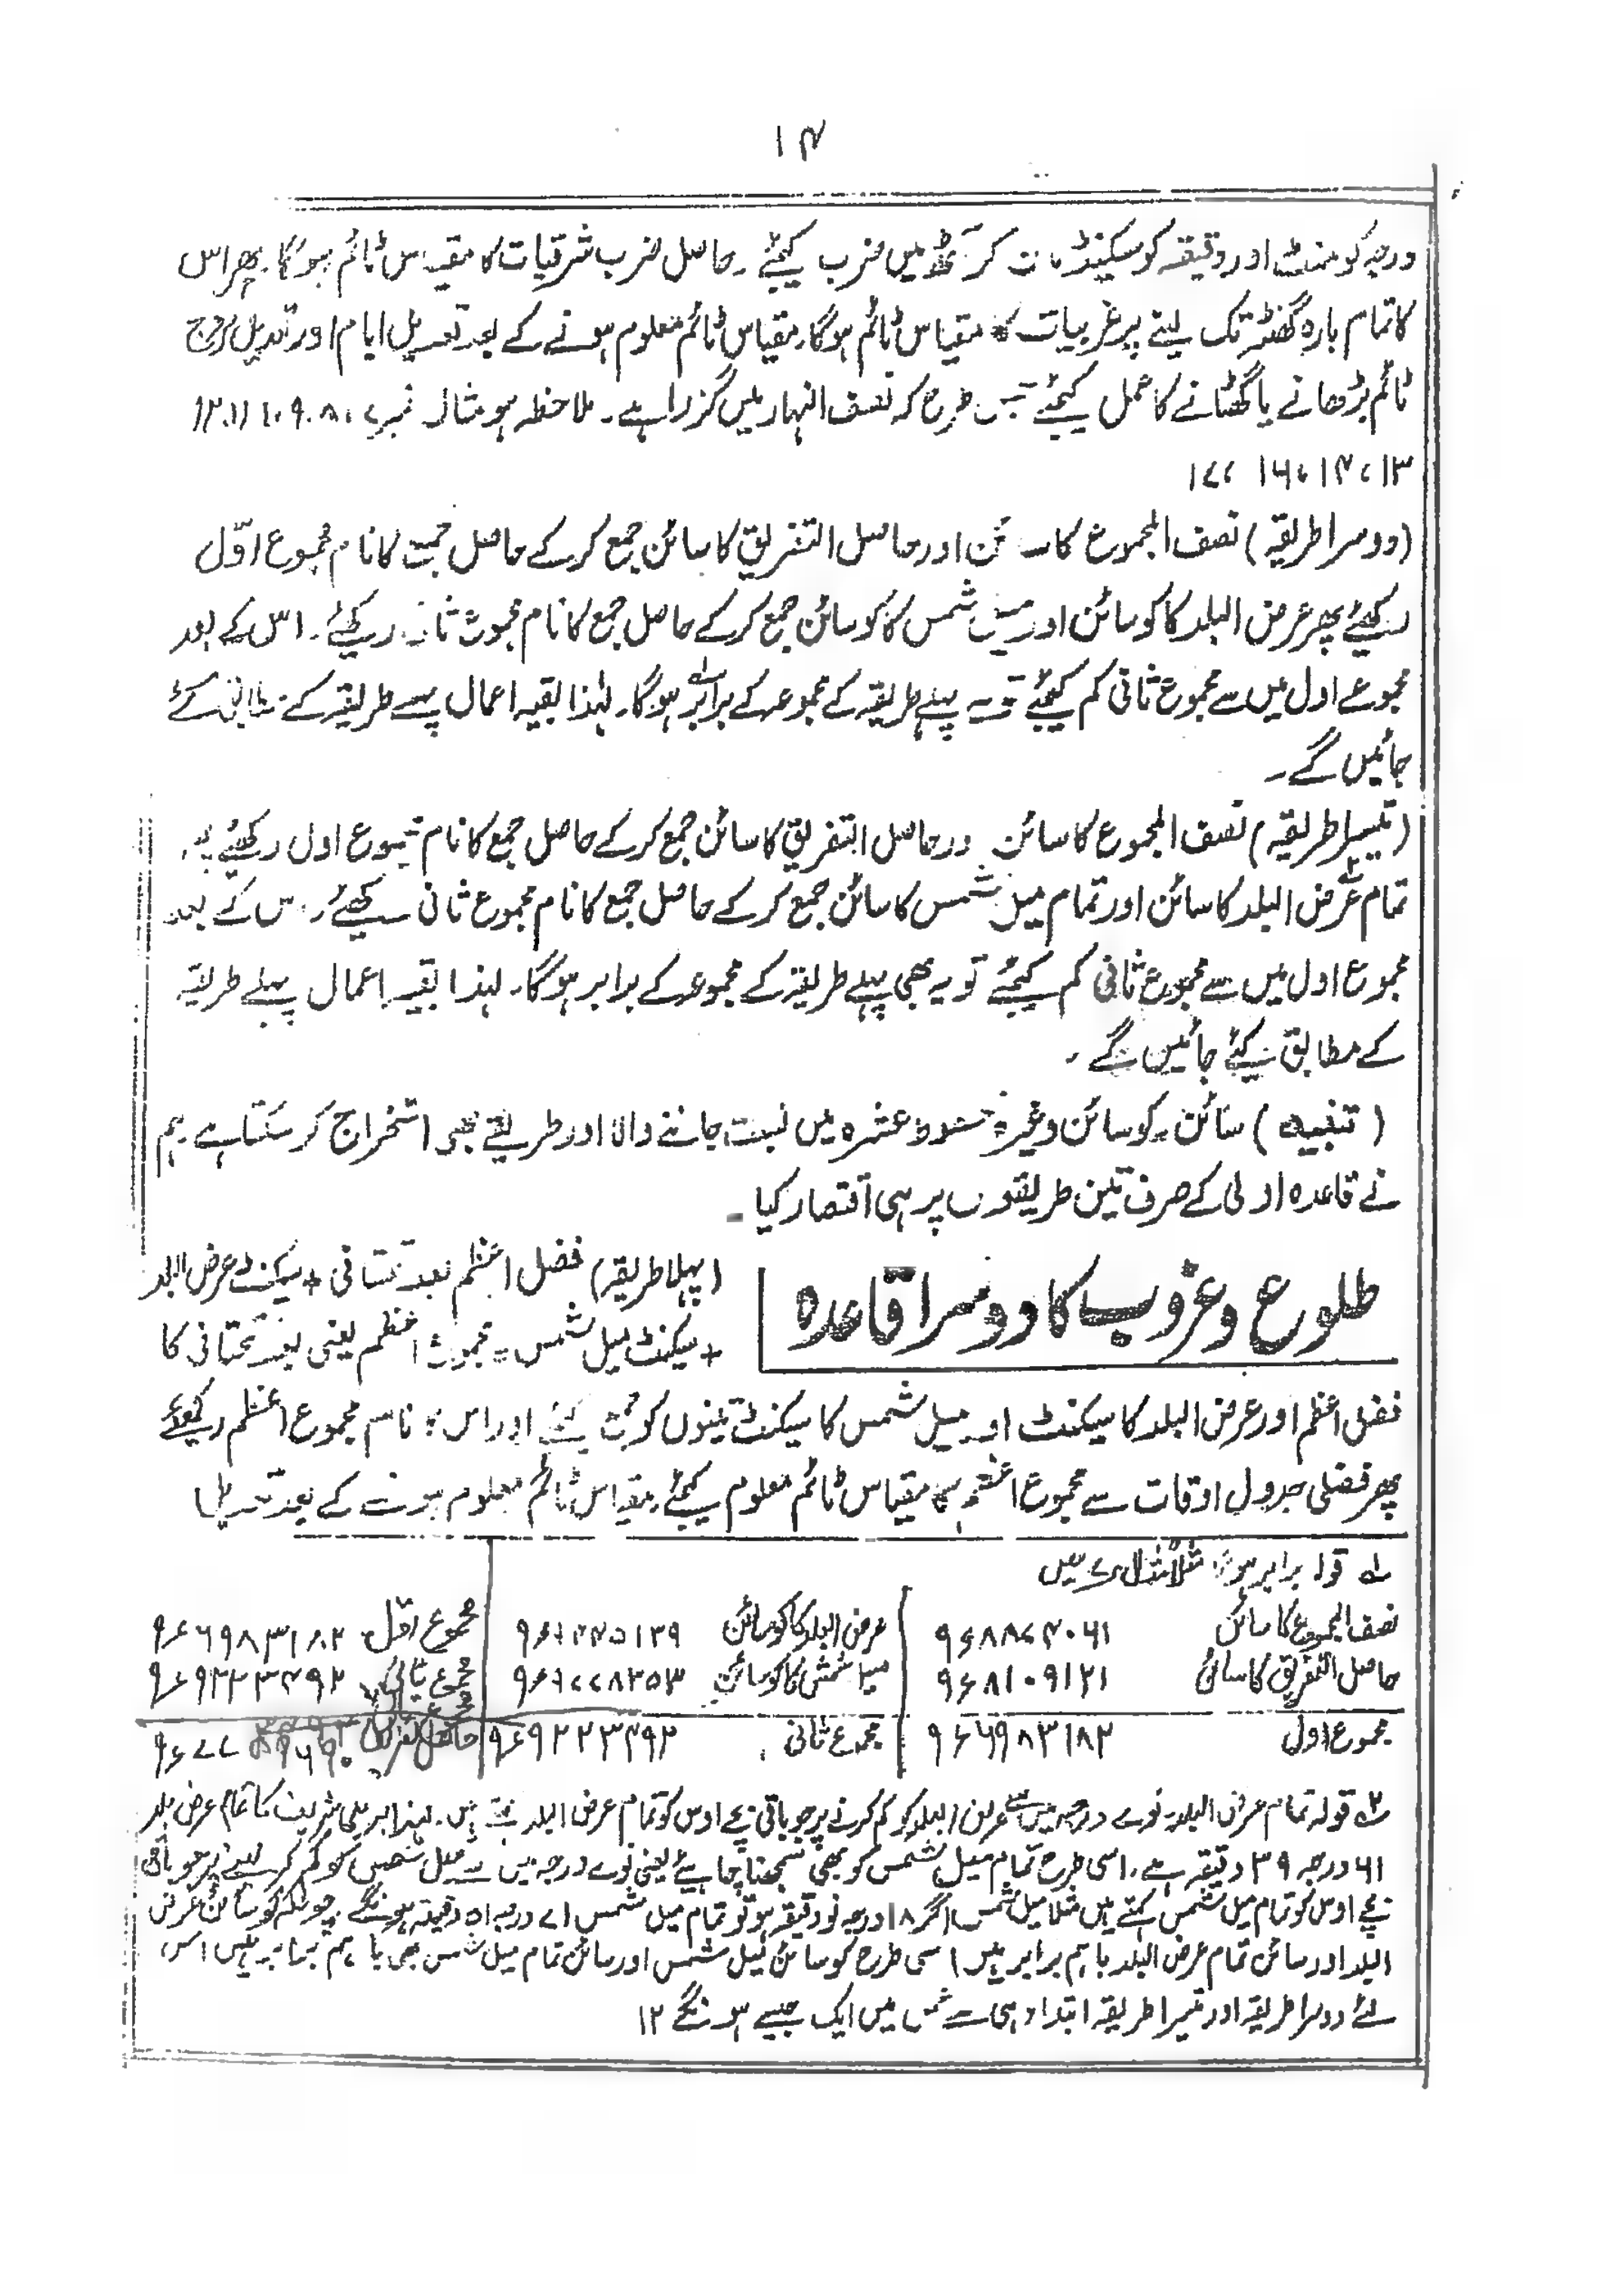 ۱۴
درجہ کو منٹ اور دقیقہ کو سیکنڈ مان کر آٹھ میں ضرب کیجئے ۔ حاصل ضرب شرقیات کا مقیاس ٹائم ہوگا ۔ پھر اس
کا تمام بارہ گھنٹہ تک لینے پر غربیات کا مقیاس ٹائم ہوگا ۔ مقیاس ٹائم معلوم ہونے کے بعد تعدیل ایام اور تعدیل مروج
ٹائم بڑھانے یا گھٹانے کا عمل کیجئے جس طرح کہ نصف النہار میں گزرا ہے ۔ ملاحظہ ہو مثال نمبر ۷، ۸، ۹، ۱۰، ۱۱، ۱۲،
۱۳، ۱۴، ۱۶، ۱۷
(دوسرا طریقہ) نصف المجموع کا سائن اور حاصل التفریق کا سائن جمع کرکے حاصل جمع کا نام مجموع اوّل
رکھیئے پھر عرض البلد کا کوسائن اور میل شمس کا کوسائن جمع کرکے حاصل جمع کا نام مجموع ثانی رکھئے ۔ اس کے بعد
مجموعے اول میں سے مجموع ثانی کم کیجئے تو یہ پہلے طریقہ کے مجموعہ کے برابر ؎۱ ہوگا ۔ لہٰذا بقیہ اعمال پہلے طریقہ کے مطابق کئے
جائیں گے ۔
(تیسرا طریقہ) نصف المجموع کا سائن اور حاصل التفریق کا سائن جمع کرکے حاصل جمع کا نام مجموع اول رکھئے پھر
تمام ؎۲ عرض البلد کا سائن اور تمام میل شمس کا سائن جمع کرکے حاصل جمع کا نام مجموع ثانی رکھئے ۔ اس کے بعد
مجموع اول میں سے مجموع ثانی کم کیجئے تو یہ بھی پہلے طریقہ کے مجموعہ کے برابر ہوگا ۔ لہذا بقیہ اعمال پہلے طریقہ
کے مطابق کئے جائیں گے ۔
( تنبیہ ) سائن ۔ کوسائن وغیرہ خطوط عشرہ میں نسبت جاننے والا اور طریقے بھی استخراج کر سکتا ہے ہم
نے قاعدہ اولیٰ کے صرف تین طریقوں پر ہی اقتصار کیا ۔
طلوع وغروب کا دوسرا قاعدہ
(پہلا طریقہ) فضل اعظم بعد تحتانی + سیکنٹ عرض البلد
+ سیکنٹ میل شمس = مجموع اعظم یعنی بعد تحتانی کا
فضل اعظم اور عرض البلد کا سیکنٹ اور میل شمس کا سیکنٹ تینوں کو جمع کیجئے اور اس کا نام مجموع اعظم رکھئے
پھر فضلی جدول اوقات سے مجموع اعظم کا مقیاس ٹائم معلوم کیجئے ۔ مقیاس ٹائم معلوم ہونے کے بعد تعدیل
؎۱ قولہ برابر ہوگا مثلاً مثال ۷ میں
نصف المجموع کا سائن ۹۶۸۸۷۴۰۶۱ عرض البلد کا کوسائن ۹۶۹۴۴۵۱۳۹ مجموع اول ۹۶۶۹۸۳۱۸۲
حاصل التفریق کا سائن ۹۶۸۱۰۹۱۲۱ میل شمس کا کوسائن ۹۶۹۷۷۸۳۵۳ مجموع ثانی ۹۶۹۲۲۳۴۹۲
مجموع اول ۹۶۶۹۸۳۱۸۲ مجموع ثانی ۹۶۹۲۲۳۴۹۲ حاصل تفریق
؎۲ قولہ تمام عرض البلد ۔ نوے درجہ میں سے عرض البلد کو کم کرنے پر جو باقی بچے اوس کو تمام عرض البلد کہتے ہیں ۔ لہذا بریلی شریف کا تمام عرض بلد
۶۱ درجہ ۳۹ دقیقہ ہے ۔ اسی طرح تمام میل شمس کو بھی سمجھنا چاہیئے یعنی نوے درجہ میں سے میل شمس کو کم کر لینے پر جو باقی
بچے اوس کو تمام میل شمس کہتے ہیں مثلا میل شمس اگر ۱۸ درجہ نو دقیقہ ہو تو تمام میل شمس ۷۱ درجہ ۵۱ دقیقہ ہونگے ۔ چونکہ کوسائن عرض
البلد اور سائن تمام عرض البلد باہم برابر ہیں اسی طرح کوسائن میل شمس اور سائن تمام میل شمس بھی باہم برابر ہیں اس
لئے دوسرا طریقہ اور تیسرا طریقہ ابتداء ہی سے عمل میں ایک جیسے ہونگے ۱۲